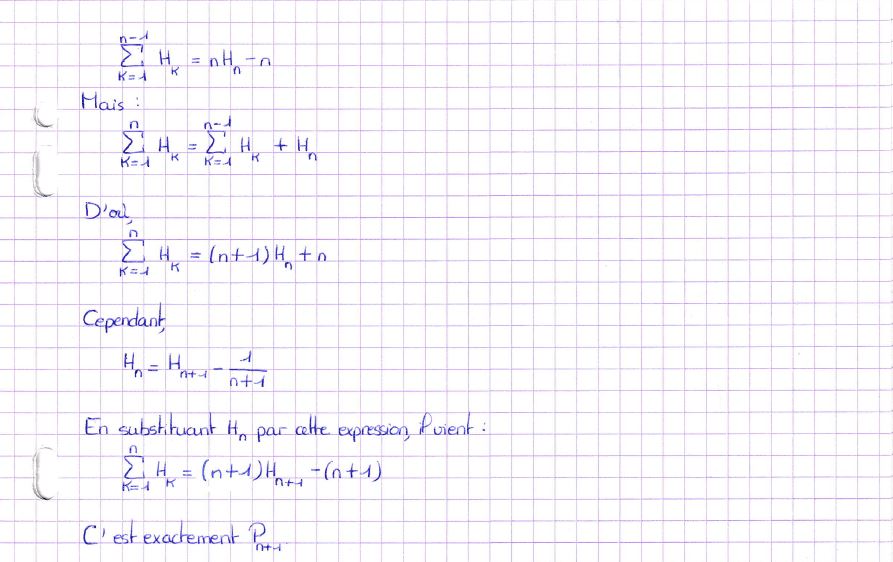 n-1
∑ H_k = nH_n - n
K=1
Mais :
n n-1
∑ H_k = ∑ H_k + H_n
K=1 K=1
D'où,
n
∑ H_k = (n+1)H_n + n
K=1
Cependant,
H_n = H_{n+1} - 1/(n+1)
En substituant H_n par cette expression, il vient :
n
∑ H_k = (n+1)H_{n+1} - (n+1)
K=1
C'est exactement P_{n+1}.